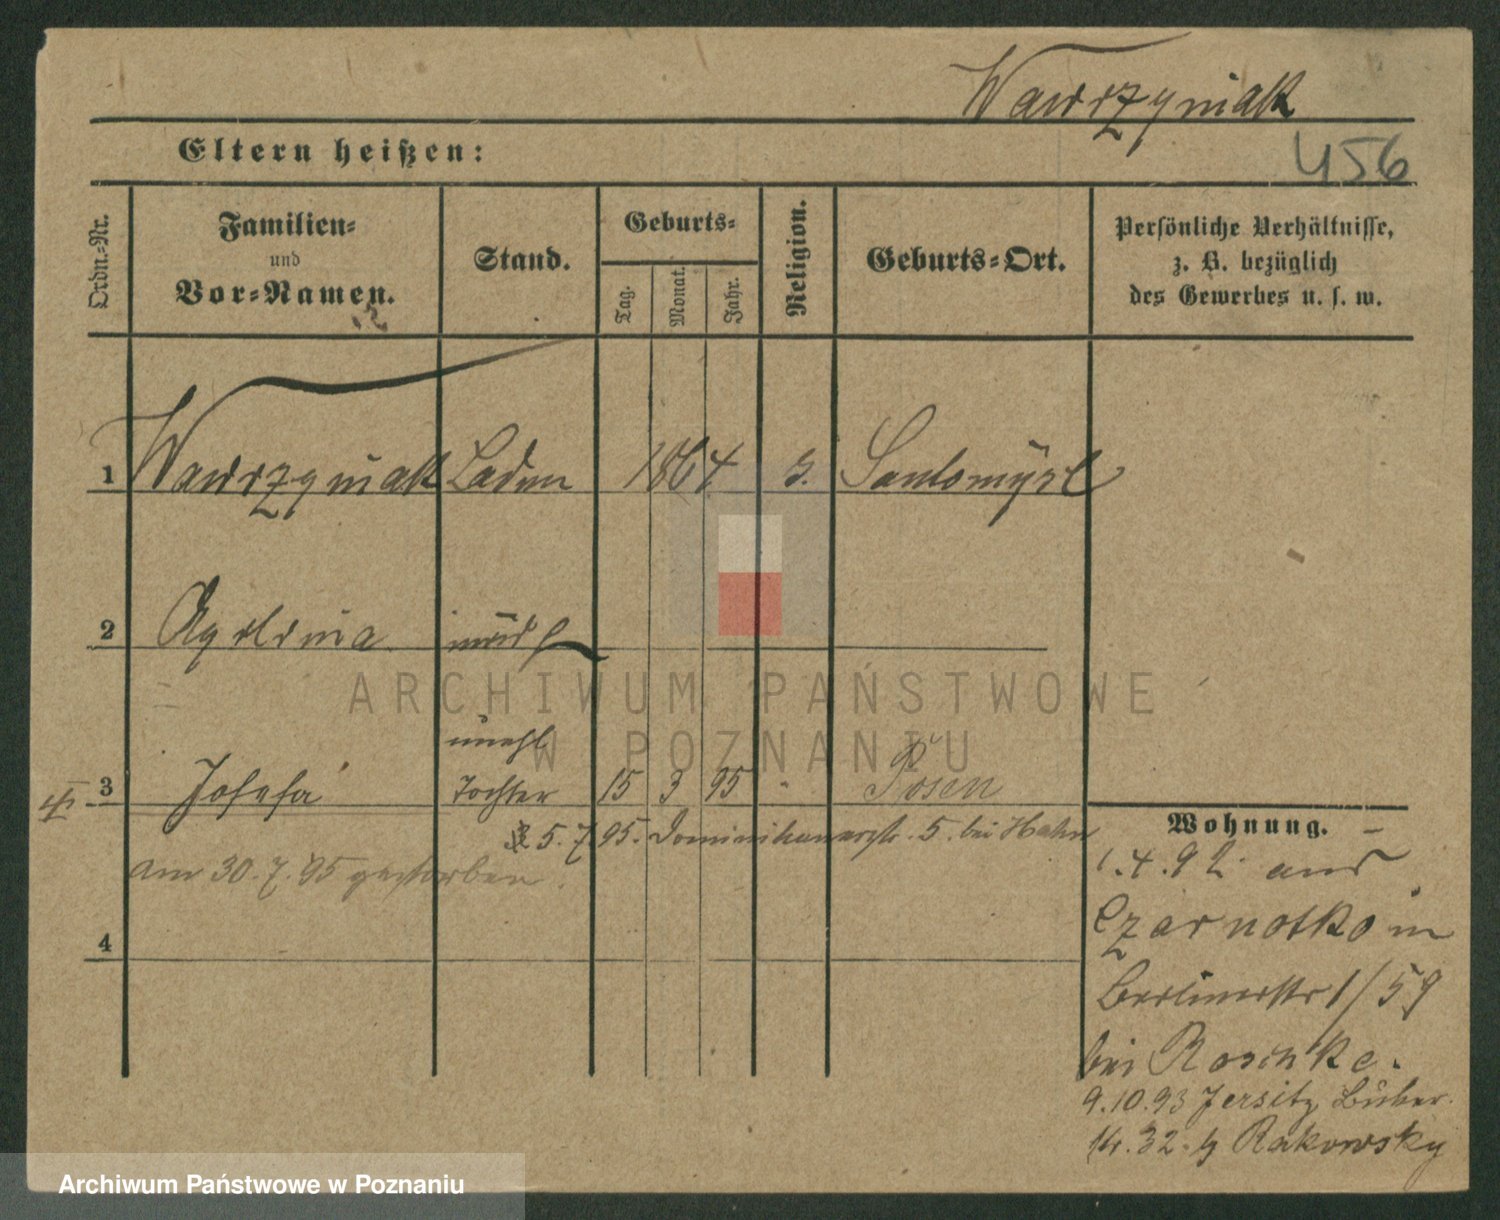 Wawrzyniak
Eltern heißen:
456
Ordn.-Nr.
Familien-
und
Vor-Namen.
Stand.
Geburts-
Tag.
Monat.
Jahr.
Religion.
Geburts-Ort.
Persönliche Verhältnisse,
z. B. bezüglich
des Gewerbes u. s. w.
1 Wawrzyniak 1864
2
ARCHIWUM PAŃSTWOWE
W POZNANIU
unehl
3 Josefa Tochter 15 3 95 Posen
5.7.95. Dominikanerstr. 5. bei Hahn
am 30.7.95 gestorben.
4
Wohnung.
1.4.92 aus
Czarnotko in
Berlinerstr 1/59
bei Roschke.
9.10.93 Jersitz
32. Rakowsky
Archiwum Państwowe w Poznaniu